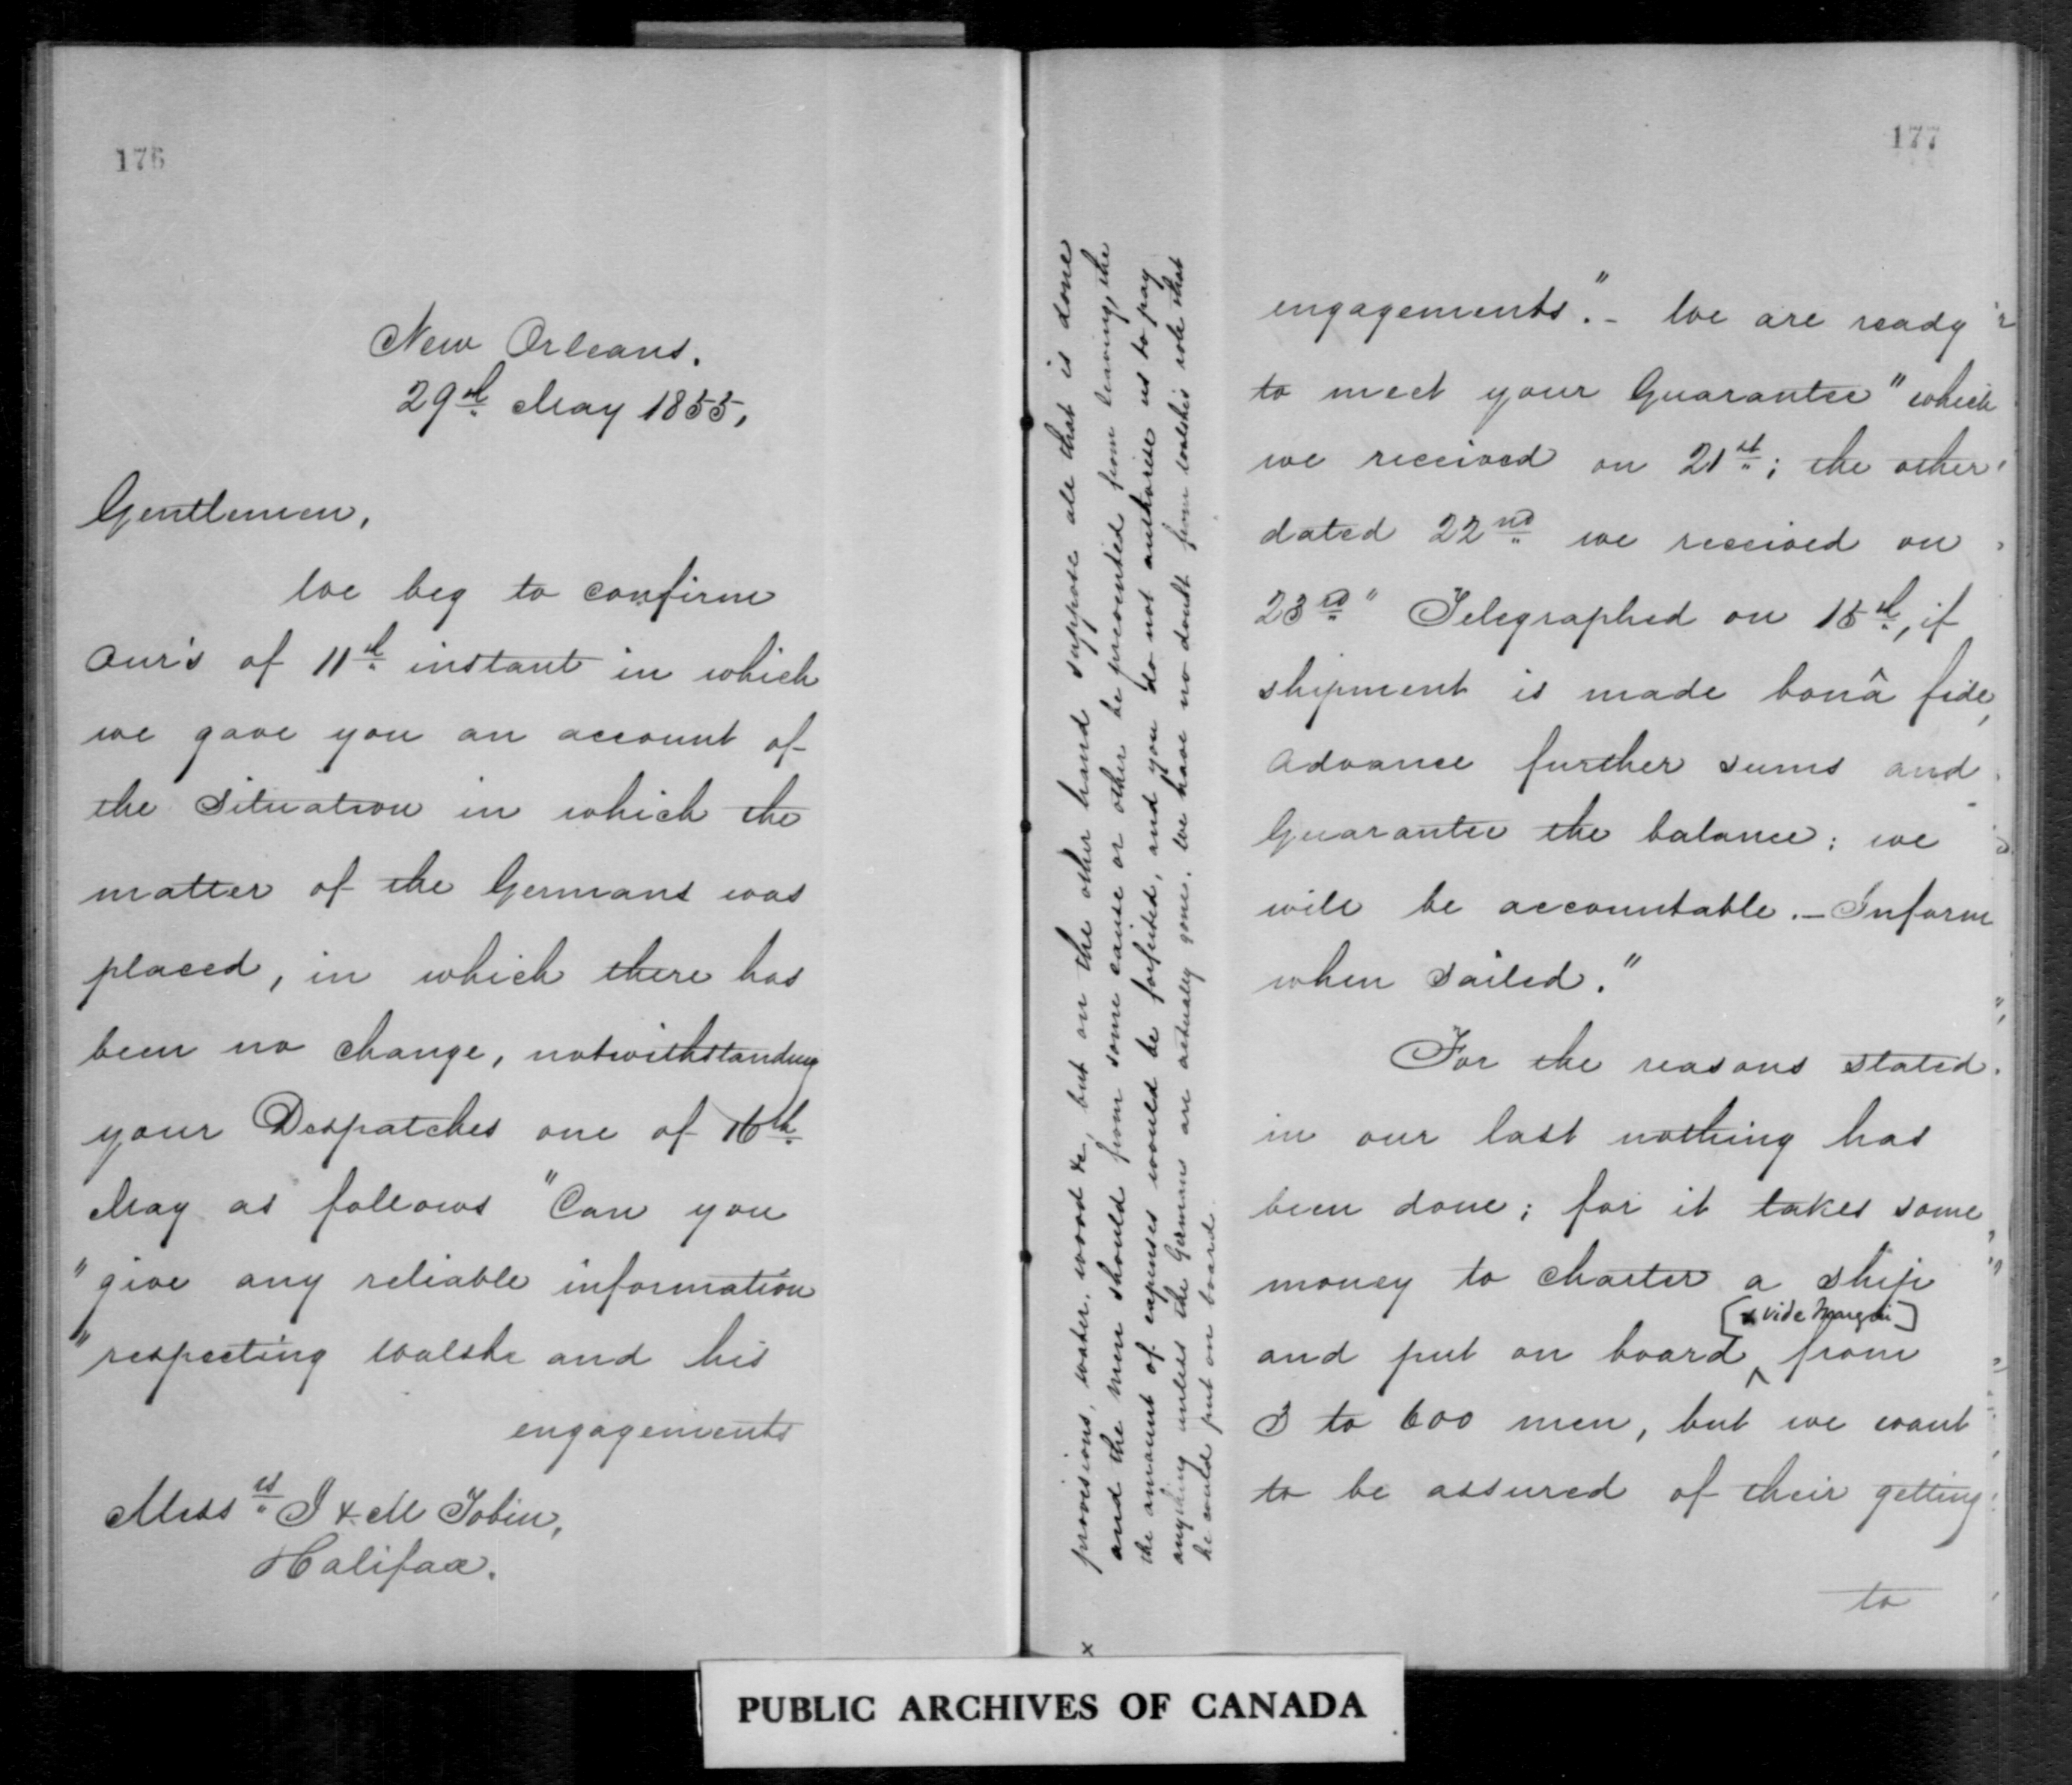 176
New Orleans.
29th May 1855,
Gentlemen,
We beg to confirm
our's of 11th instant in which
we gave you an account of
the situation in which the
matter of the Germans was
placed, in which there has
been no change, notwithstanding
your Despatches one of 16th
May as follows "Can you
"give any reliable information
"respecting Walshe and his
engagements
Messrs J & M Tobin,
Halifax.
177
engagements". - We are ready
to meet your Guarantee" which
we received on 21st; the other
dated 22nd we received on
23rd " Telegraphed on 15th, if
shipment is made bonâ fide,
advance further sums and
Guarantee the balance; we
will be accountable. - Inform
when sailed."
For the reasons stated
in our last nothing has
been done; for it takes some
money to charter a ship
[x vide margin]
and put on board ^ from
3 to 600 men, but we want
to be assured of their getting
to
x provisions, water, wood &c, but on the other hand suppose all that is done
and the men should from some cause or other be prevented from leaving, the
the amount of expenses would be forfeited, and you do not authorise us to pay
anything unless the Germans are actually gone. We have no doubt from Walshe's role that
he could put on board
PUBLIC ARCHIVES OF CANADA